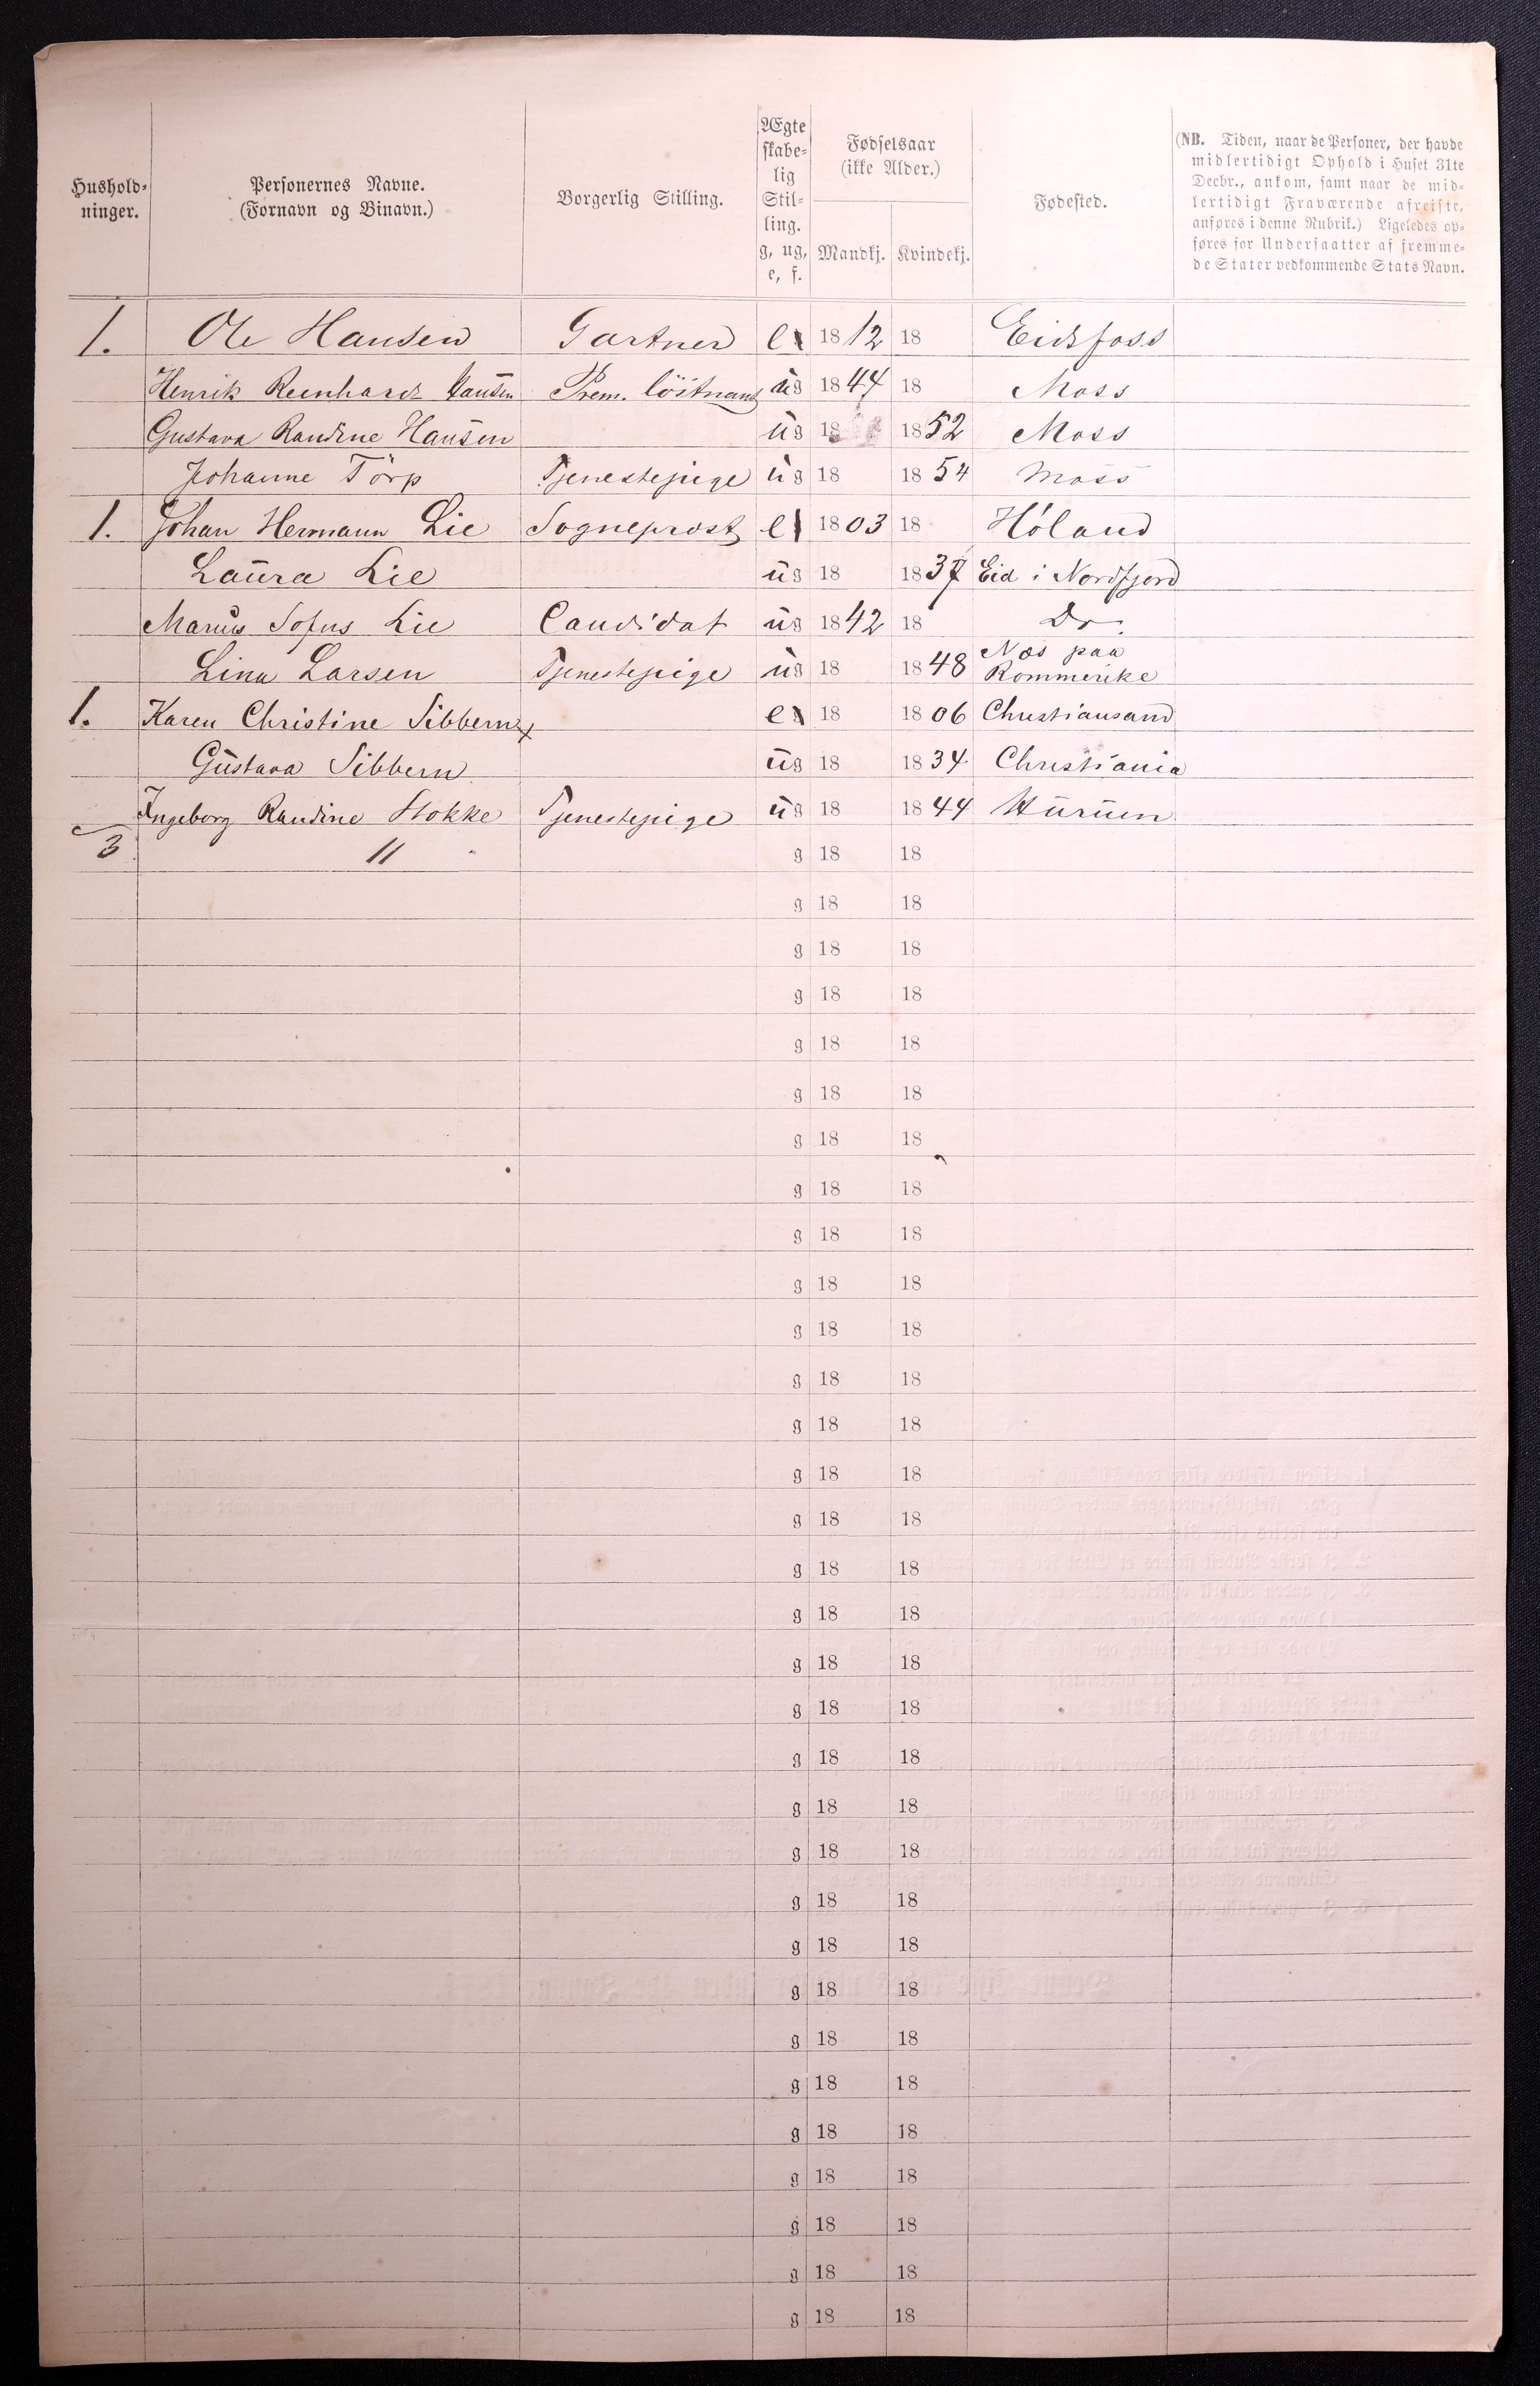 Hushold-
ninger.
Personernes Navne.
(Fornavn og Binavn.)
Borgerlig Stilling.
Ægte
skabe-
lig
Stil-
ling.
g, ug,
e, f.
Fødselsaar
(ikke Alder.)
Mandkj. Kvindekj.
Fødested.
(NB. Tiden, naar de Personer, der havde
midlertidigt Ophold i Huset 31te
Decbr., ankom, samt naar de mid-
lertidigt Fraværende afreiste,
anføres i denne Rubrik.) Ligeledes op-
føres for Undersaatter af fremme-
de Stater vedkommende Stats Navn.
1. Ole Hansen Gartner e 1812 18 Eidsfoss
Henrik Reinhardt Hansen Prem. löitnant ug 1844 18 Moss
Gustava Randine Hansen ug 18 1852 Moss
Johanne Törp Tjenestepige ug 18 1854 Moss
1. Johan Hermann Lie Sogneprost e 1803 18 Höland
Laura Lie ug 18 1837 Eid i Nordfjord
Marius Sofus Lie Candidat ug 1842 18 Do.
Lina Larsen Tjenestepige ug 18 1848 Næs paa
Rommerike
1. Karen Christine Sibbern x e 18 1806 Christiansand
Gustava Sibbern ug 18 1834 Christiania
Ingeborg Randine Stokke Tjenestepige ug 18 1844 Hurum
3 11 g 18 18
g 18 18
g 18 18
g 18 18
g 18 18
g 18 18
g 18 18
g 18 18
g 18 18
g 18 18
g 18 18
g 18 18
g 18 18
g 18 18
g 18 18
g 18 18
g 18 18
g 18 18
g 18 18
g 18 18
g 18 18
g 18 18
g 18 18
g 18 18
g 18 18
g 18 18
g 18 18
g 18 18
g 18 18
g 18 18
g 18 18
g 18 18